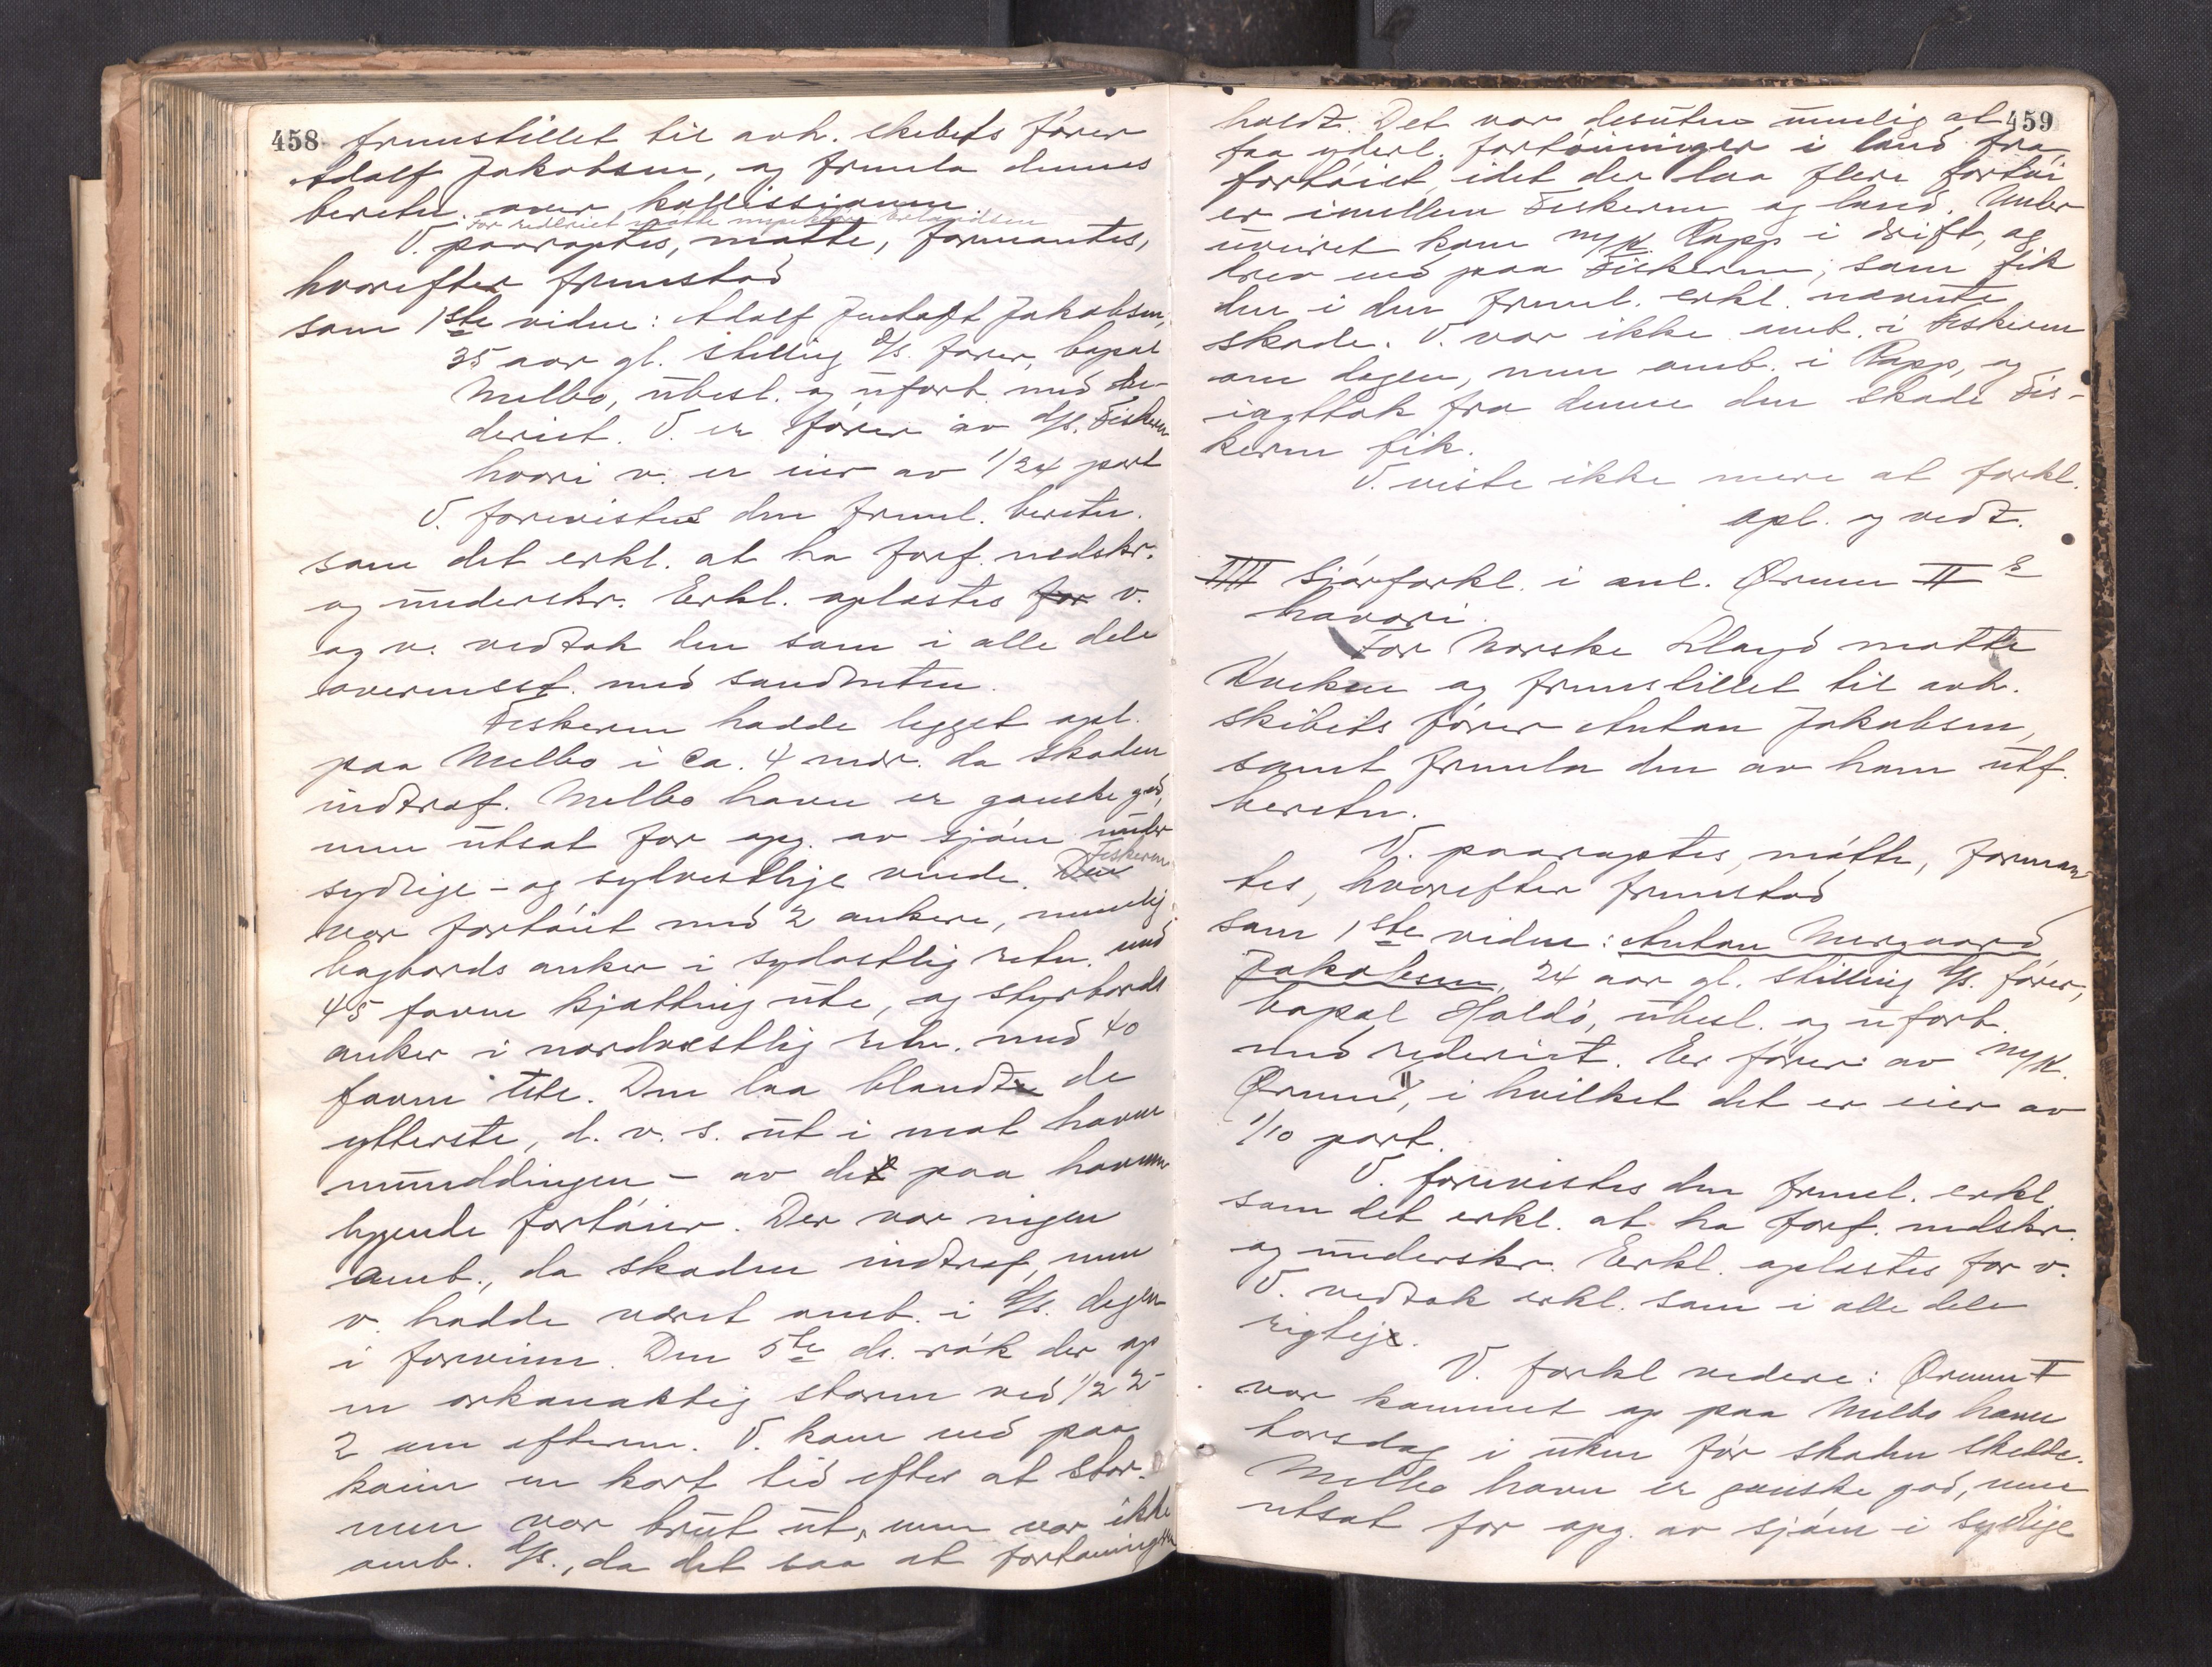 458 fremstillet til avh. skibets fører
Adolf Jakobsen, og fremla dennes
beretn. over kollissionen.
For rederiet møtte inspektør Erlandsen
V. paaraptes, møtte, formantes,
hvorefter fremstod
som 1ste vidne: Adolf Jakobsen,
35 aar gl. stilling d/s. fører, bopæl
Melbo, ubesl. og uforb. med re-
deriet. V. er fører av d/s. Fiskeren
hvori v. er eier av 1/24 part
V. forevistes den freml. beretn.
som det erkl. at ha forf. nedskr.
og underskr. Erkl. oplæstes for v.
og v. vedtok den som i alle dele
overensst. med sandheten.
Fiskeren hadde ligget opl.
paa Melbo i ca. 4 mdr. da skaden
indtraf. Melbo havn er ganske god,
men utsat for opg. av sjøen under
sydlige- og sydvestlige vinde. Den Fiskeren
var fortøiet med 2 ankere, nemlig
bagbords anker i sydostlig retn. med
45 favne kjætting ute, og styrbords
anker i nordvestlig retn. med 40
favne ute. Den laa blandt de
ytterste, d. v. s. ut i mot havne
mundingen - av de paa havnen
liggende fartøier. Der var ingen
omb., da skaden indtraf, men
v. hadde været omb. i d/s. dagen
i forveien. Den 5te ds. røk der op
en orkanaktig storm ved 1/2 2-
2 em efterm. V. kom ned paa
kaien en kort tid efter at stor-
men var brut ut, men var ikke
omb. d/s., da det saa at fortøiningen
459
holdt. Det var desuten umulig at
faa yderl. fortøininger i land fra
fartøiet, idet der laa flere fartøi
er imellem Fiskeren og land. Under
uveiret kom m/k Rapp i drift, og
drev ned paa Fiskeren, som fik
den i den freml. erkl. nævnte
skade. V. var ikke omb. i Fiskeren
om dagen, men omb. i Rapp, og
iagttok fra denne den skade Fis-
keren fik.
V. viste ikke mere at forkl.
Opl. og vedt.
IIII Sjøforkl. i anl. Ørnen II s
havari.
For Norske Lloyd møtte
og fremstillet til avh.
skibets fører Anton Jakobsen,
samt fremla den av ham utf.
beretn.
V. paaraptes, møtte, forman-
tes, hvorefter fremstod
som 1ste vidne: Anton Norgaard
Jakobsen, 24 aar gl. stilling d/s. fører,
bopæl Haldø, ubesl. og uforb.
med rederiet. Er fører av m/k.
Ørnen II, i hvilket det er eier av
1/10 part.
V. forevistes den freml. erkl.
som det erkl. at ha forf. nedskr.
og underskr. Erkl. oplæstes for v.
V. vedtok erkl. som i alle dele
rigtig.
V. forkl videre: Ørnen II
var kommet op paa Melbo havn
torsdag i uken før skaden skedde.
Melbo havn er ganske god, men
utsat for opg. av sjøen i sydlige